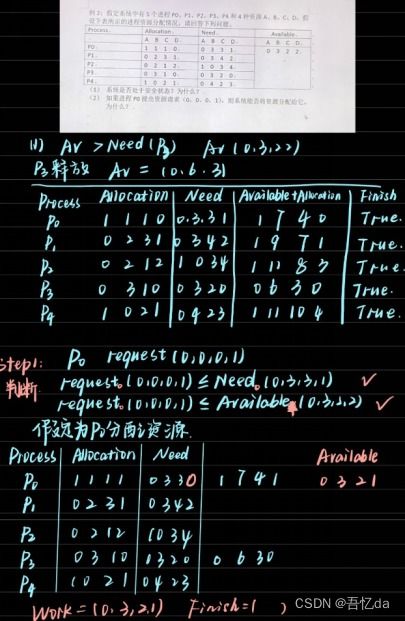 例2:假定系统中有5个进程P0、P1、P2、P3、P4和4种资源A、B、C、D,假
设下表所示的进程资源分配情况,请回答下列问题。
Process Allocation Need Available
A B C D A B C D A B C D
P0 1 1 1 0 0 3 3 1 0 3 2 2
P1 0 2 3 1 0 3 4 2
P2 0 2 1 2 1 0 3 4
P3 0 3 1 0 0 3 2 0
P4 1 0 2 1 0 4 2 3
(1) 系统是否处于安全状态?为什么?
(2) 如果进程P0提出资源请求(0,0,0,1),则系统能否将资源分配给它,
为什么?
(1) Av > Need(P3) Av(0.3.2 2)
P3释放 Av = (0.6.3)
Process Allocation Need Available+Allocation Finish
P0 1 1 1 0 0.3.3 1 1 7 4 0 True.
P1 0 2 3 1 0 3 4 2 1 9 7 1 True.
P2 0 2 1 2 1 0 3 4 1 11 8 3 True.
P3 0 3 1 0 0 3 2 0 0 6 3 0 True.
P4 1 0 2 1 0 4 2 3 1 11 10 4 True.
Step1: P0 request(0,0,0,1)
判断 request0(0,0,0,1) ≤ Need0(0,3,3,1) ✓
request0(0,0,0,1) ≤ Available(0,3,2,2) ✓
假定为P0分配资源
Process Allocation Need Available
P0 1 1 1 1 0 3 3 0 1 7 4 1 0 3 2 1
P1 0 2 3 1 0 3 4 2
P2 0 2 1 2 1 0 3 4
P3 0 3 1 0 0 3 2 0 0 6 3 0
P4 1 0 2 1 0 4 2 3
Work = (0.3,2.1) Finish=( )
CSDN @吾忆da